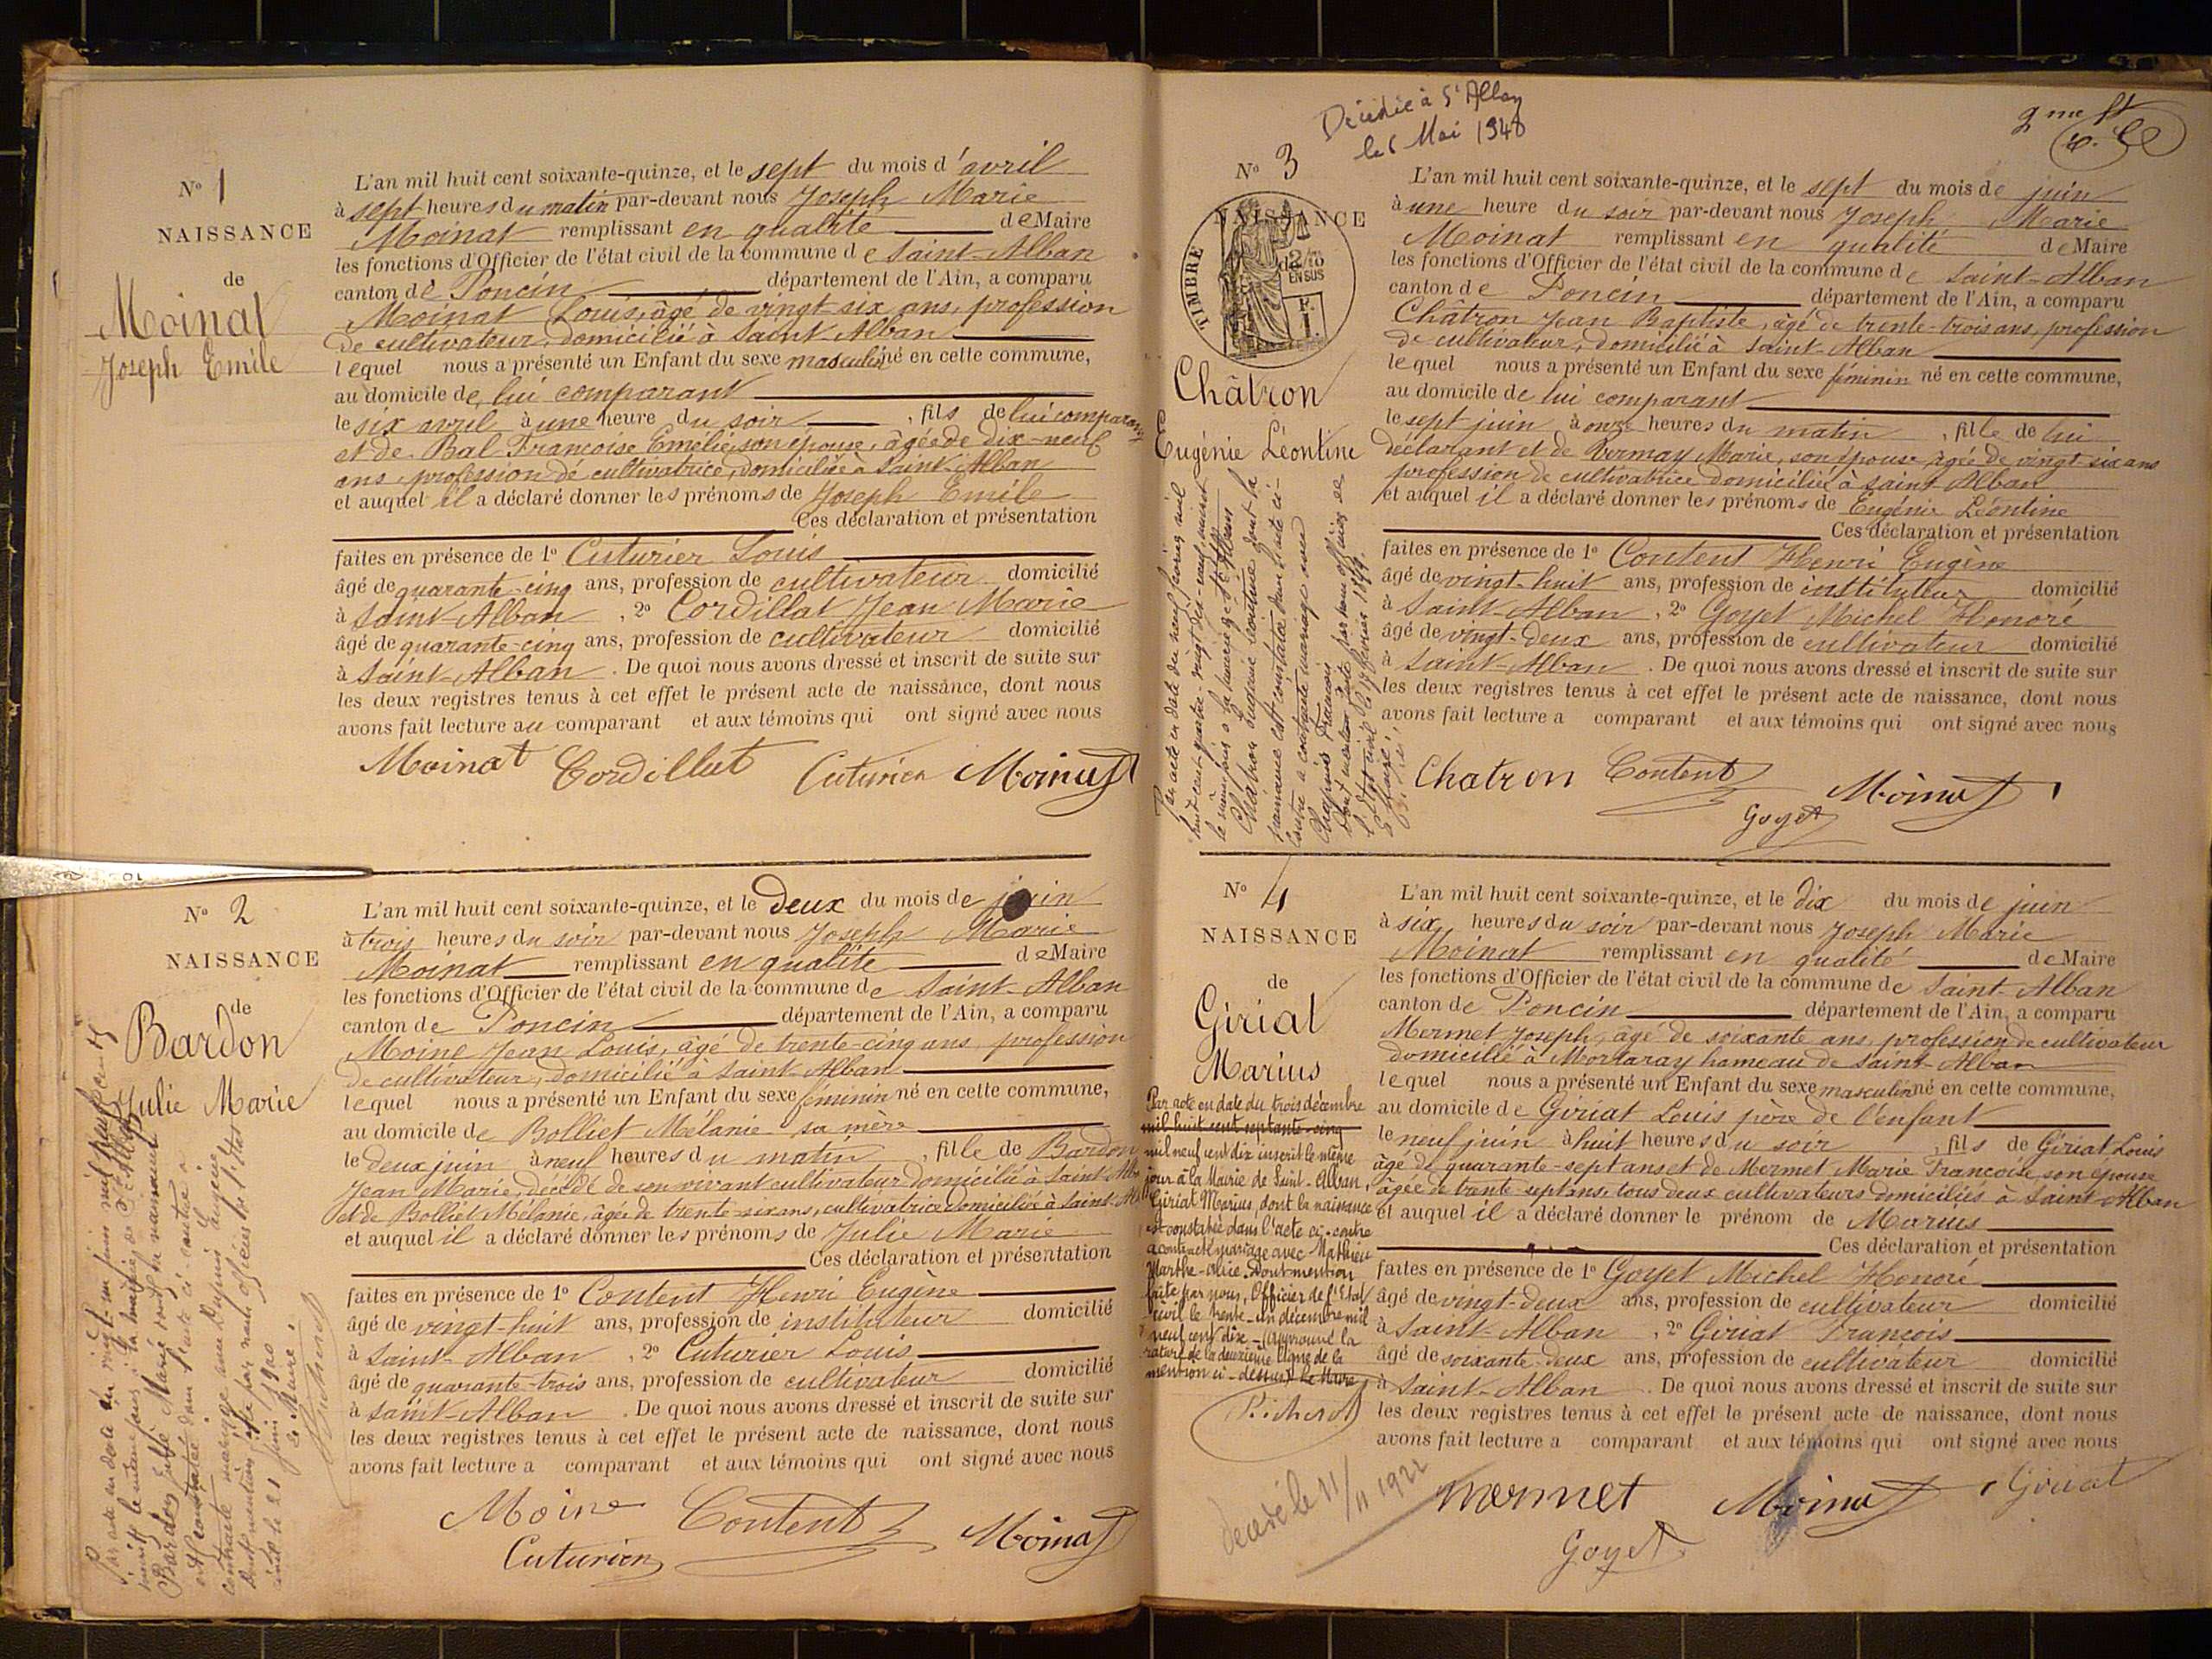 N° 1
NAISSANCE
de
Moinat
Joseph Emile
L'an mil huit cent soixante-quinze, et le sept du mois d'avril
à sept heures du matin par-devant nous Joseph Marie
Moinat remplissant en qualité de Maire
les fonctions d'Officier de l'état civil de la commune de Saint-Alban
canton de Poncin département de l'Ain, a comparu
Moinat Louis, âgé de vingt-six ans, profession
de cultivateur, domicilié à Saint-Alban
lequel nous a présenté un Enfant du sexe masculin né en cette commune,
au domicile de lui comparant
le six avril à une heure du soir, fils de lui comparant
et de Bal Françoise Emélie, son épouse, âgée de dix-neuf
ans, profession de cultivatrice, domiciliée à Saint-Alban
et auquel il a déclaré donner les prénoms de Joseph Emile
Ces déclaration et présentation
faites en présence de 1° Cuturier Louis
âgé de quarante-cinq ans, profession de cultivateur domicilié
à Saint-Alban, 2° Cordillat Jean Marie
âgé de quarante-cinq ans, profession de cultivateur domicilié
à Saint-Alban. De quoi nous avons dressé et inscrit de suite sur
les deux registres tenus à cet effet le présent acte de naissance, dont nous
avons fait lecture au comparant et aux témoins qui ont signé avec nous
Moinat Cordillat Cuturier Moinat
N° 2
NAISSANCE
de
Bardon
Julie Marie
L'an mil huit cent soixante-quinze, et le Deux du mois de juin
à trois heures du soir par-devant nous Joseph Marie
Moinat remplissant en qualité de Maire
les fonctions d'Officier de l'état civil de la commune de Saint-Alban
canton de Poncin département de l'Ain, a comparu
Moine Jean Louis, âgé de trente-cinq ans, profession
de cultivateur, domicilié à Saint-Alban
lequel nous a présenté un Enfant du sexe féminin né en cette commune,
au domicile de Bolliet Mélanie sa mère
le deux juin à neuf heures du matin, fille de Bardon
Jean Marie, décédé de son vivant cultivateur domicilié à Saint-Alb
et de Bolliet Mélanie, âgée de trente-six ans, cultivatrice domiciliée à Saint-Al
et auquel il a déclaré donner les prénoms de Julie Marie
Ces déclaration et présentation
faites en présence de 1° Content Henri Eugène
âgé de vingt-huit ans, profession de instituteur domicilié
à Saint-Alban, 2° Cuturier Louis
âgé de quarante-trois ans, profession de cultivateur domicilié
à Saint-Alban. De quoi nous avons dressé et inscrit de suite sur
les deux registres tenus à cet effet le présent acte de naissance, dont nous
avons fait lecture a comparant et aux témoins qui ont signé avec nous
Moine Content Moinat
Cuturier
Par acte en date du vingt-un juin mil neuf cent
inscrit le même jour à la mairie de St Alban
Bardon Julie Marie dont la naissance
est constatée dans l'acte ci-contre a
contracté mariage avec Eugène
Dont mention faite par nous officier de l'état
civil le 21 juin 1900
Le Maire
Décédée à St Alban
le 6 Mai 1940
2me ft
N° 3
NAISSANCE
TIMBRE
2/10
EN SUS
Châtron
Eugénie Léontine
L'an mil huit cent soixante-quinze, et le sept du mois de juin
à une heure du soir par-devant nous Joseph Marie
Moinat remplissant en qualité de Maire
les fonctions d'Officier de l'état civil de la commune de Saint-Alban
canton de Poncin département de l'Ain, a comparu
Châtron Jean Baptiste, âgé de trente-trois ans, profession
de cultivateur, domicilié à Saint-Alban
lequel nous a présenté un Enfant du sexe féminin né en cette commune,
au domicile de lui comparant
le sept juin à onze heures du matin, fille de lui
déclarant et de Marie, son épouse âgée de vingt-six ans
profession de cultivatrice domiciliée à Saint-Alban
et auquel il a déclaré donner les prénoms de Eugénie Léontine
Ces déclaration et présentation
faites en présence de 1° Content Henri Eugène
âgé de vingt-huit ans, profession de instituteur domicilié
à Saint-Alban, 2° Goyet Michel Honoré
âgé de vingt-deux ans, profession de cultivateur domicilié
à Saint-Alban. De quoi nous avons dressé et inscrit de suite sur
les deux registres tenus à cet effet le présent acte de naissance, dont nous
avons fait lecture a comparant et aux témoins qui ont signé avec nous
Chatron Content Moinat
Goyet
Par acte en date du neuf février mil
huit cent quatre-vingt-dix-neuf inscrit
le même jour à la mairie de St Alban
Châtron Eugénie Léontine dont la
naissance est constatée dans l'acte ci-
contre a contracté mariage avec
Chapuis François
Dont mention faite par nous officier de
l'état civil le 17 février 1899.
Le Maire
N° 4
NAISSANCE
de
Giriat
Marius
L'an mil huit cent soixante-quinze, et le dix du mois de juin
à six heures du soir par-devant nous Joseph Marie
Moinat remplissant en qualité de Maire
les fonctions d'Officier de l'état civil de la commune de Saint-Alban
canton de Poncin département de l'Ain, a comparu
Mermet Joseph, âgé de soixante ans, profession de cultivateur
domicilié à Mortaray hameau de Saint-Alban
lequel nous a présenté un Enfant du sexe masculin né en cette commune,
au domicile de Giriat Louis père de l'enfant
le neuf juin à huit heures du soir, fils de Giriat Louis
âgé de quarante-sept ans et de Mermet Marie Françoise son épouse
âgée de trente-sept ans, tous deux cultivateurs domiciliés à Saint-Alban
et auquel il a déclaré donner le prénom de Marius
Ces déclaration et présentation
faites en présence de 1° Goyet Michel Honoré
âgé de vingt-deux ans, profession de cultivateur domicilié
à Saint-Alban, 2° Giriat François
âgé de soixante-deux ans, profession de cultivateur domicilié
à Saint-Alban. De quoi nous avons dressé et inscrit de suite sur
les deux registres tenus à cet effet le présent acte de naissance, dont nous
avons fait lecture a comparant et aux témoins qui ont signé avec nous
mermet Moinat Giriat
Goyet
Par acte en date du trois décembre
mil huit cent septante-cinq
mil neuf cent dix inscrit le même
jour à la Mairie de Saint-Alban,
Giriat Marius, dont la naissance
est constatée dans l'acte ci-contre
a contracté mariage avec Mathieu
Marthe-Alice. Dont mention
faite par nous, Officier de l'Etat
civil le trente-un décembre mil
neuf cent dix - (approuvé la
rature de la deuxième ligne de la
mention ci-dessus) Le Maire
Décédé le 11/11 1922